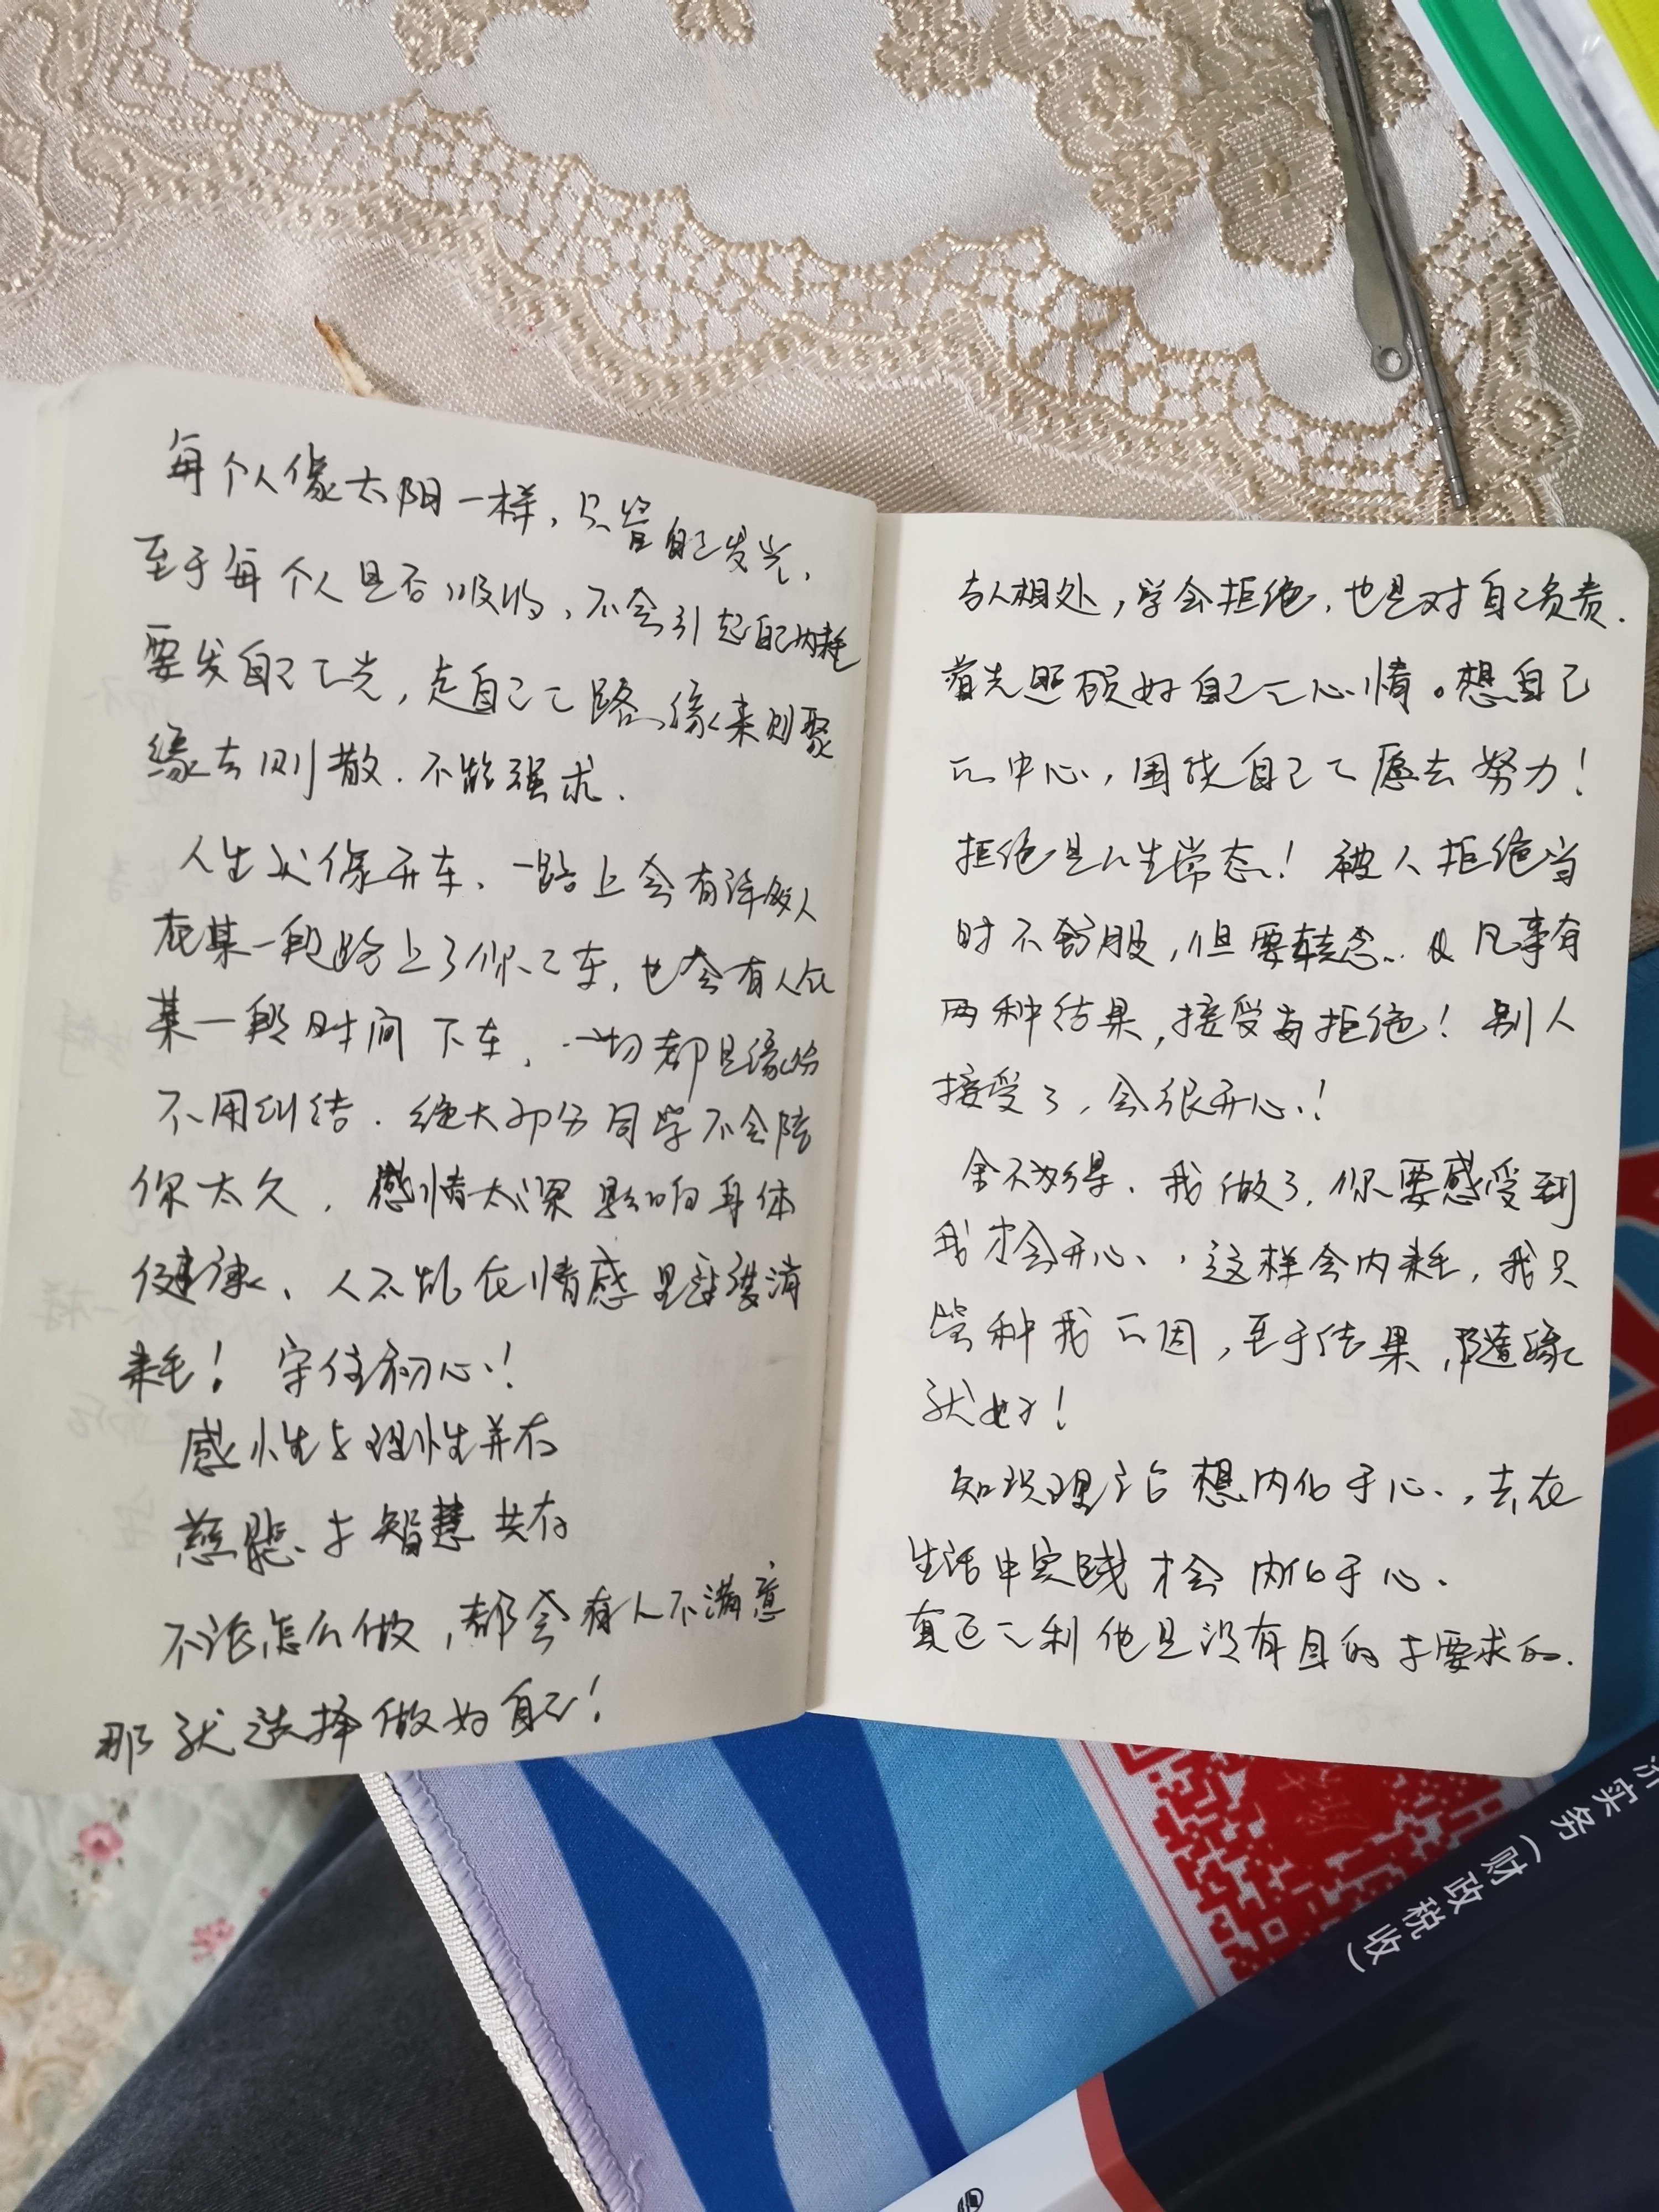 每个人像太阳一样，只管自己发光，
至于每个人是否吸收，不会引起自己内耗
要发自己之光，走自己之路，缘来则聚
缘去则散．不能强求．
人生就像开车、一路上会有许多人
在某一段路上了你之车，也会有人在
某一段时间下车，一切都是缘份
不用纠结．绝大部分同学不会陪
你太久，感情太深影响身体
健康、人不能在情感里过渡消
耗！守住初心！
感性与理性并存
慈悲与智慧共存
不论怎么做，都会有人不满意
那就选择做好自己！
与人相处，学会拒绝，也是对自己负责．
首先照顾好自己之心情。想自己
之中心，围绕自己之愿去努力！
拒绝是人生常态！被人拒绝当
时不舒服，但要转念．凡事有
两种结果，接受与拒绝！别人
接受了，会很开心！
舍不得、我做了，你要感受到
我才会开心，这样会内耗，我只
管种我之因，至于结果，随缘
就好！
知识理论想内化于心，去在
生活中实践才会内化于心．
真正之利他是没有目的与要求的．
济实务（财政税收）